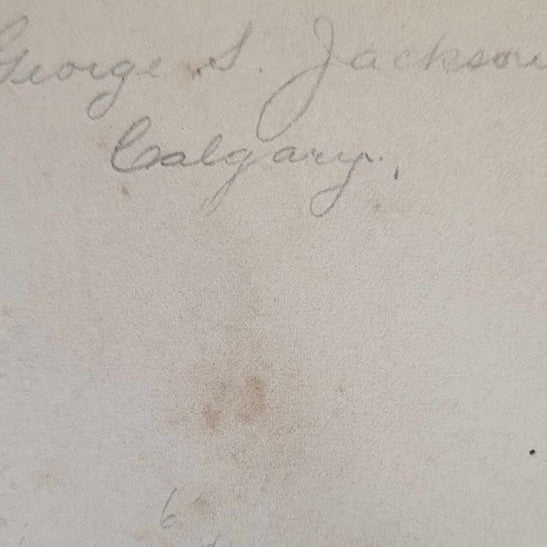 George S. Jackson
Calgary.
6